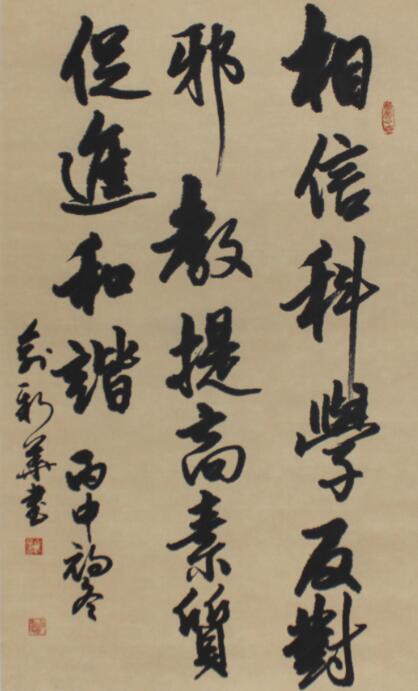 相信科學反對
邪教提高素質
促進和諧 丙申初冬
新華书